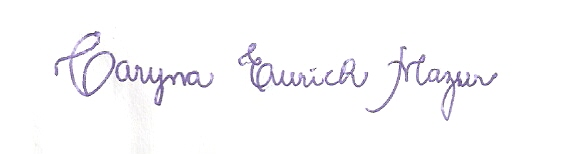 Taryna Eurich Mazur